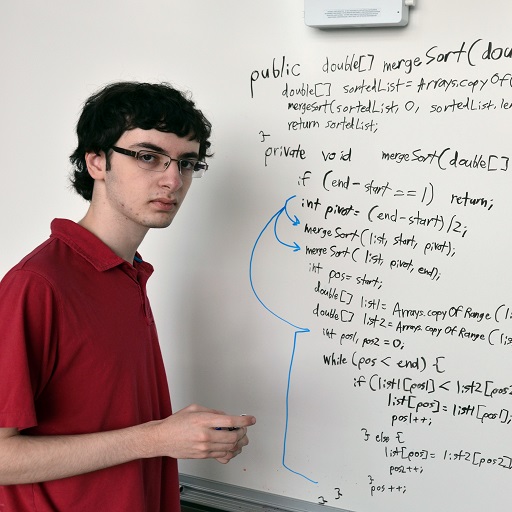 public double[] mergeSort(dou
double[] sortedList = Arrays.copyOf(
mergeSort(sortedList, 0, sortedList.len
return sortedList;
}
private void mergeSort(double[]
if (end-start == 1) return;
int pivot = (end-start)/2;
mergeSort(list, start, pivot);
mergeSort(list, pivot, end);
int pos = start;
double[] list1 = Arrays.copyOfRange(li
double[] list2 = Arrays.copyOfRange(lis
int pos1, pos2 = 0;
while (pos < end) {
if (list1[pos1] < list2[pos2
list[pos] = list1[pos1];
pos1++;
} else {
list[pos] = list2[pos2]
pos2++;
}
pos++;
} }